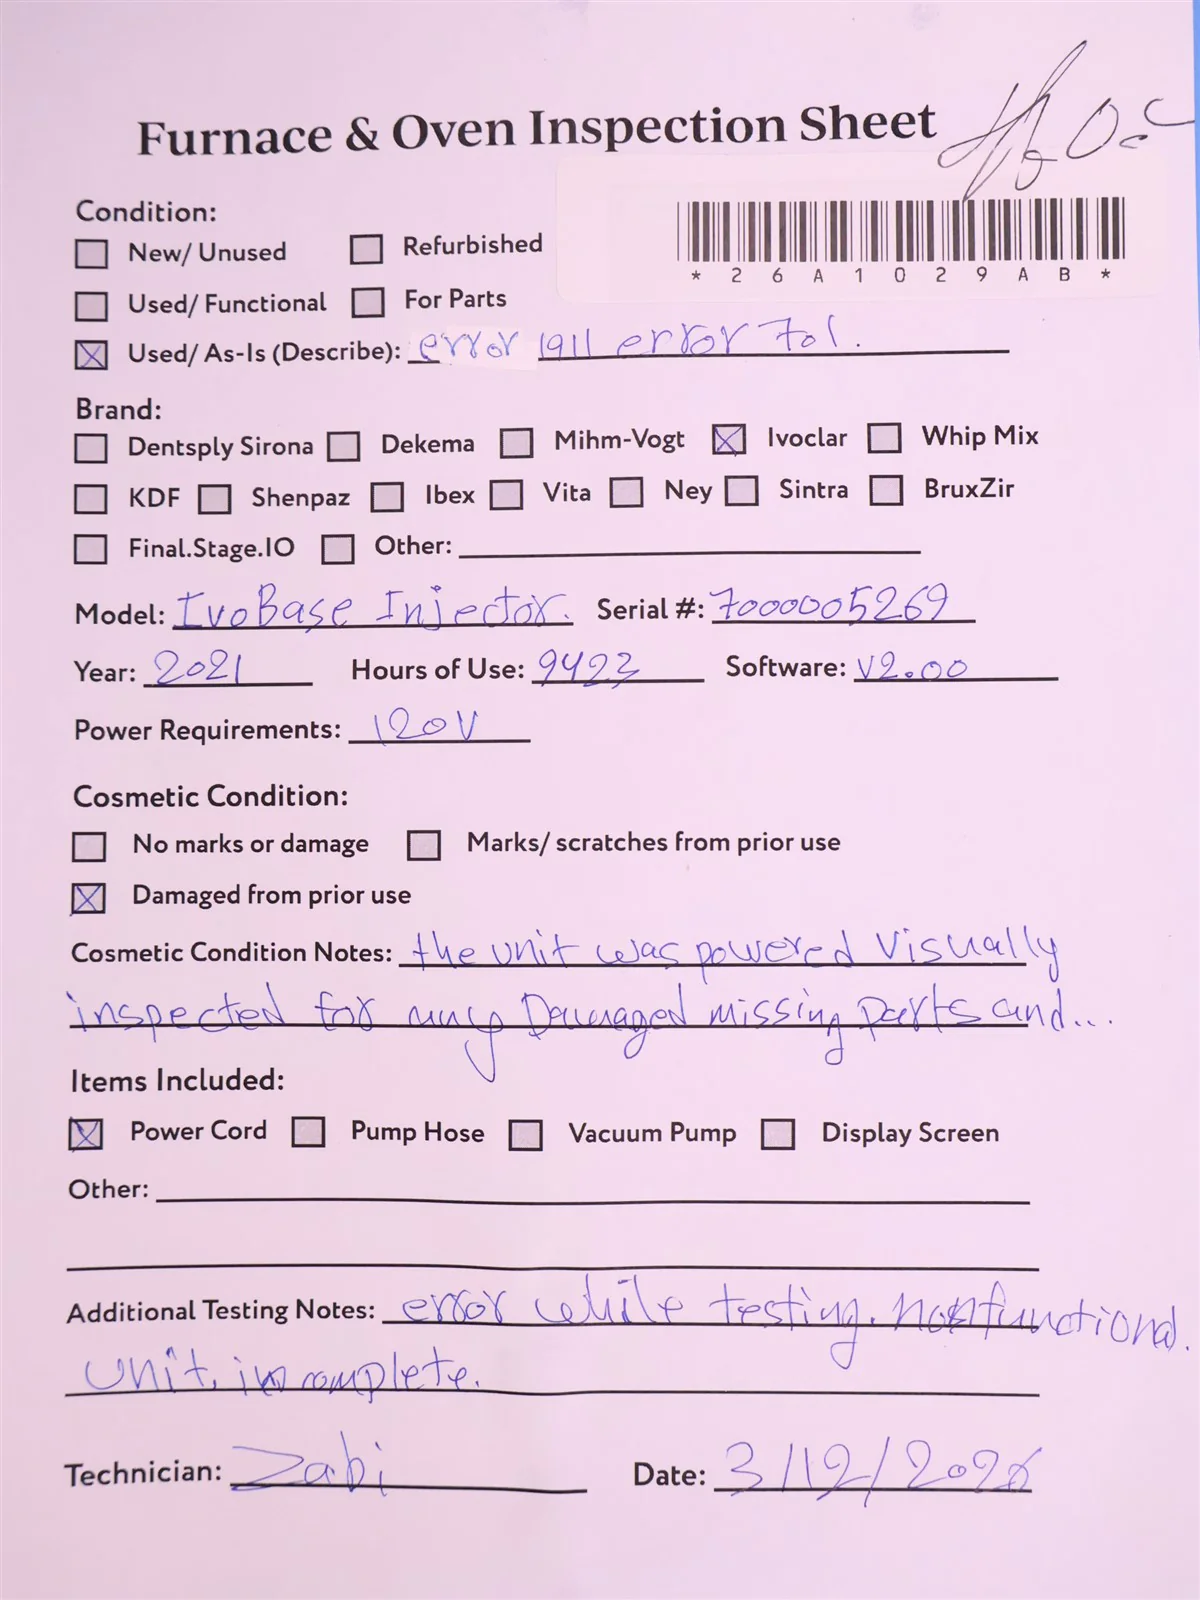 Furnace & Oven Inspection Sheet
* 2 6 A 1 0 2 9 A B *
Condition:
New/ Unused Refurbished
Used/ Functional For Parts
Used/ As-Is (Describe): error 1911 error 701.
Brand:
Dentsply Sirona Dekema Mihm-Vogt Ivoclar Whip Mix
KDF Shenpaz Ibex Vita Ney Sintra BruxZir
Final.Stage.IO Other:
Model: IvoBase Injector. Serial #: 7000005269
Year: 2021 Hours of Use: 9423 Software: V2.00
Power Requirements: 120V
Cosmetic Condition:
No marks or damage Marks/ scratches from prior use
Damaged from prior use
Cosmetic Condition Notes: the unit was powered Visually
inspected for any Damaged missing parts and...
Items Included:
Power Cord Pump Hose Vacuum Pump Display Screen
Other:
Additional Testing Notes: error while testing. nonfunctional.
unit, incomplete.
Technician: Zabi Date: 3/12/2026